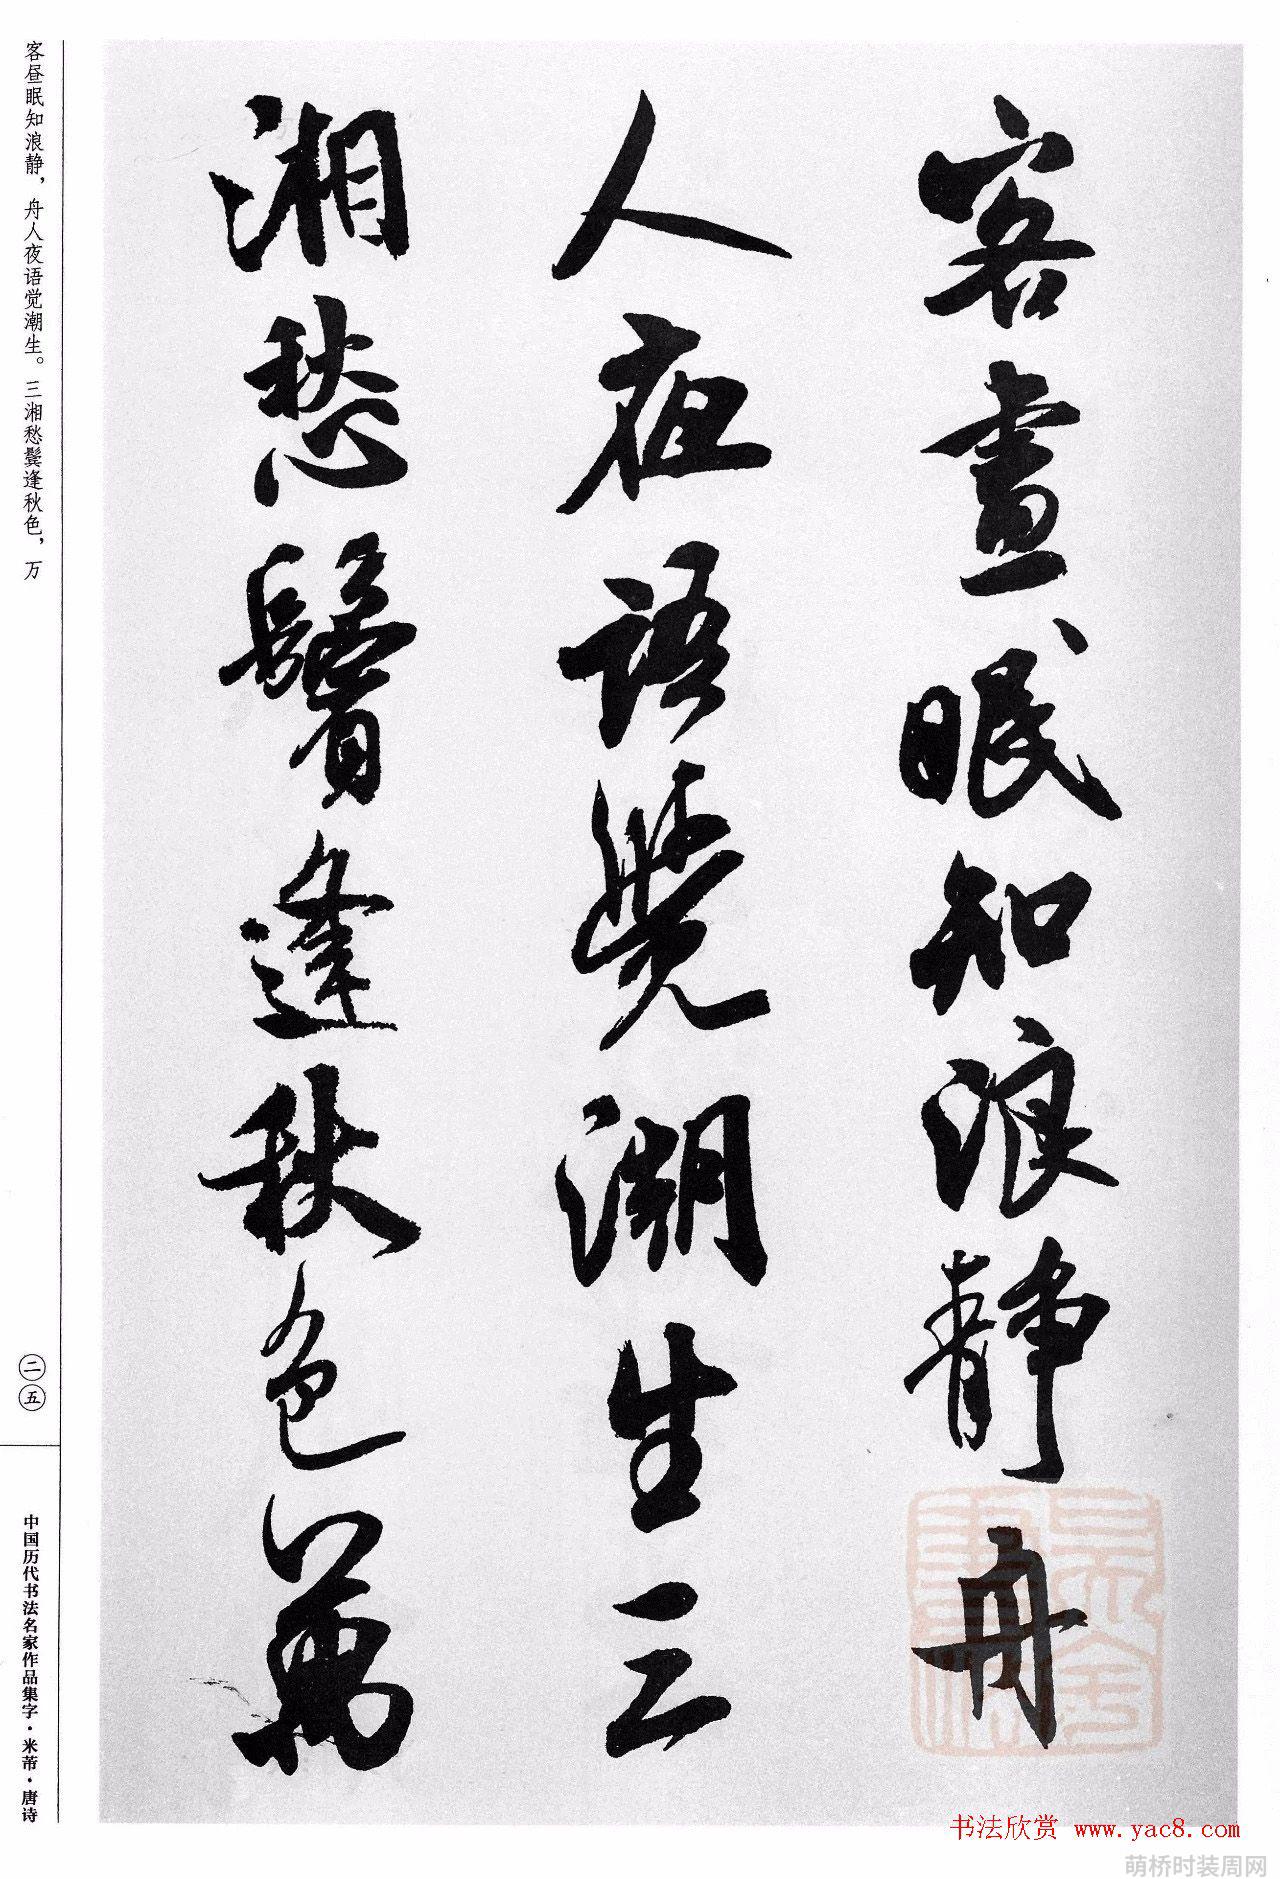 客晝眠知浪靜舟
人夜語覺潮生三
湘愁鬢逢秋色萬
客昼眠知浪静，舟人夜语觉潮生。三湘愁鬓逢秋色，万
二五
中国历代书法名家作品集字·米芾·唐诗
书法欣赏 www.yac8.com
萌桥时装周网